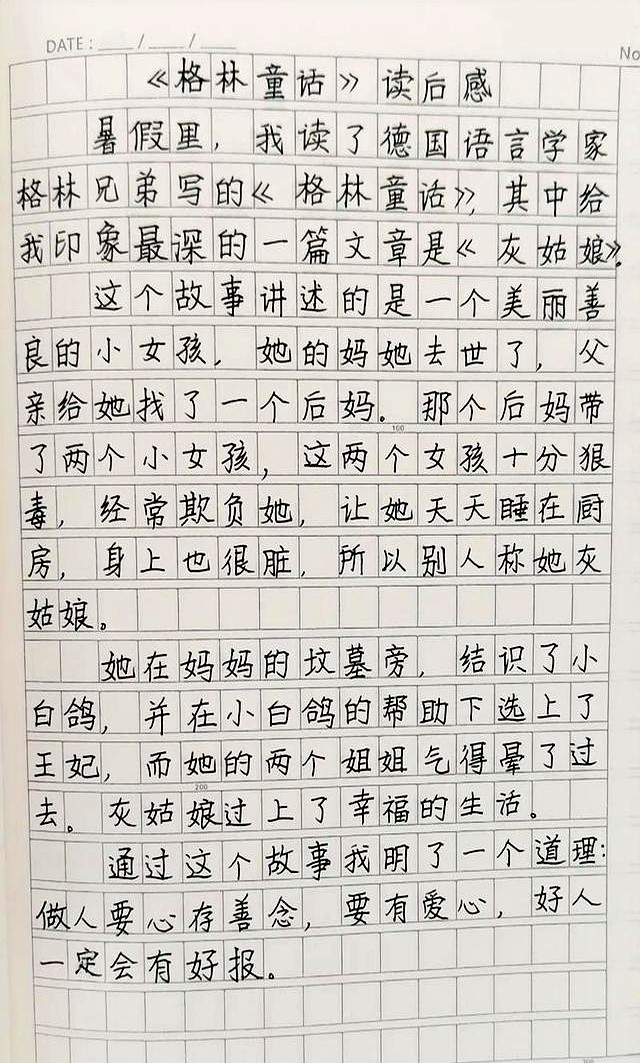 DATE: ___/___/___
No
《格林童话》读后感
暑假里，我读了德国语言学家
格林兄弟写的《格林童话》，其中给
我印象最深的一篇文章是《灰姑娘》。
这个故事讲述的是一个美丽善
良的小女孩，她的妈她去世了，父
亲给她找了一个后妈。那个后妈带
100
了两个小女孩，这两个女孩十分狠
毒，经常欺负她，让她天天睡在厨
房，身上也很脏，所以别人称她灰
姑娘。
她在妈妈的坟墓旁，结识了小
白鸽，并在小白鸽的帮助下选上了
王妃，而她的两个姐姐气得晕了过
200
去。灰姑娘过上了幸福的生活。
通过这个故事我明了一个道理：
做人要心存善念，要有爱心，好人
一定会有好报。